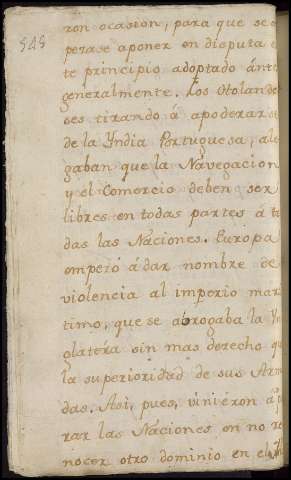 545
ron ocasion, para que se
perase aponer en disputa
te principio adoptado ánte
generalmente. Los Otolande
ses tirando á apoderarse
de la Yndia Portuguesa, ale
gaban que la Navegacion
y el Comercio deben ser
libres en todas partes á to
das las Naciones. Europa
empezó á dar nombre de
violencia al imperio mari
timo, que se abrogaba la Yn
glaterra sin mas derecho que
la superioridad de sus Arma
das. Asi, pues, viniéron á pa
rar las Naciones en no reco
nocer otro dominio en el